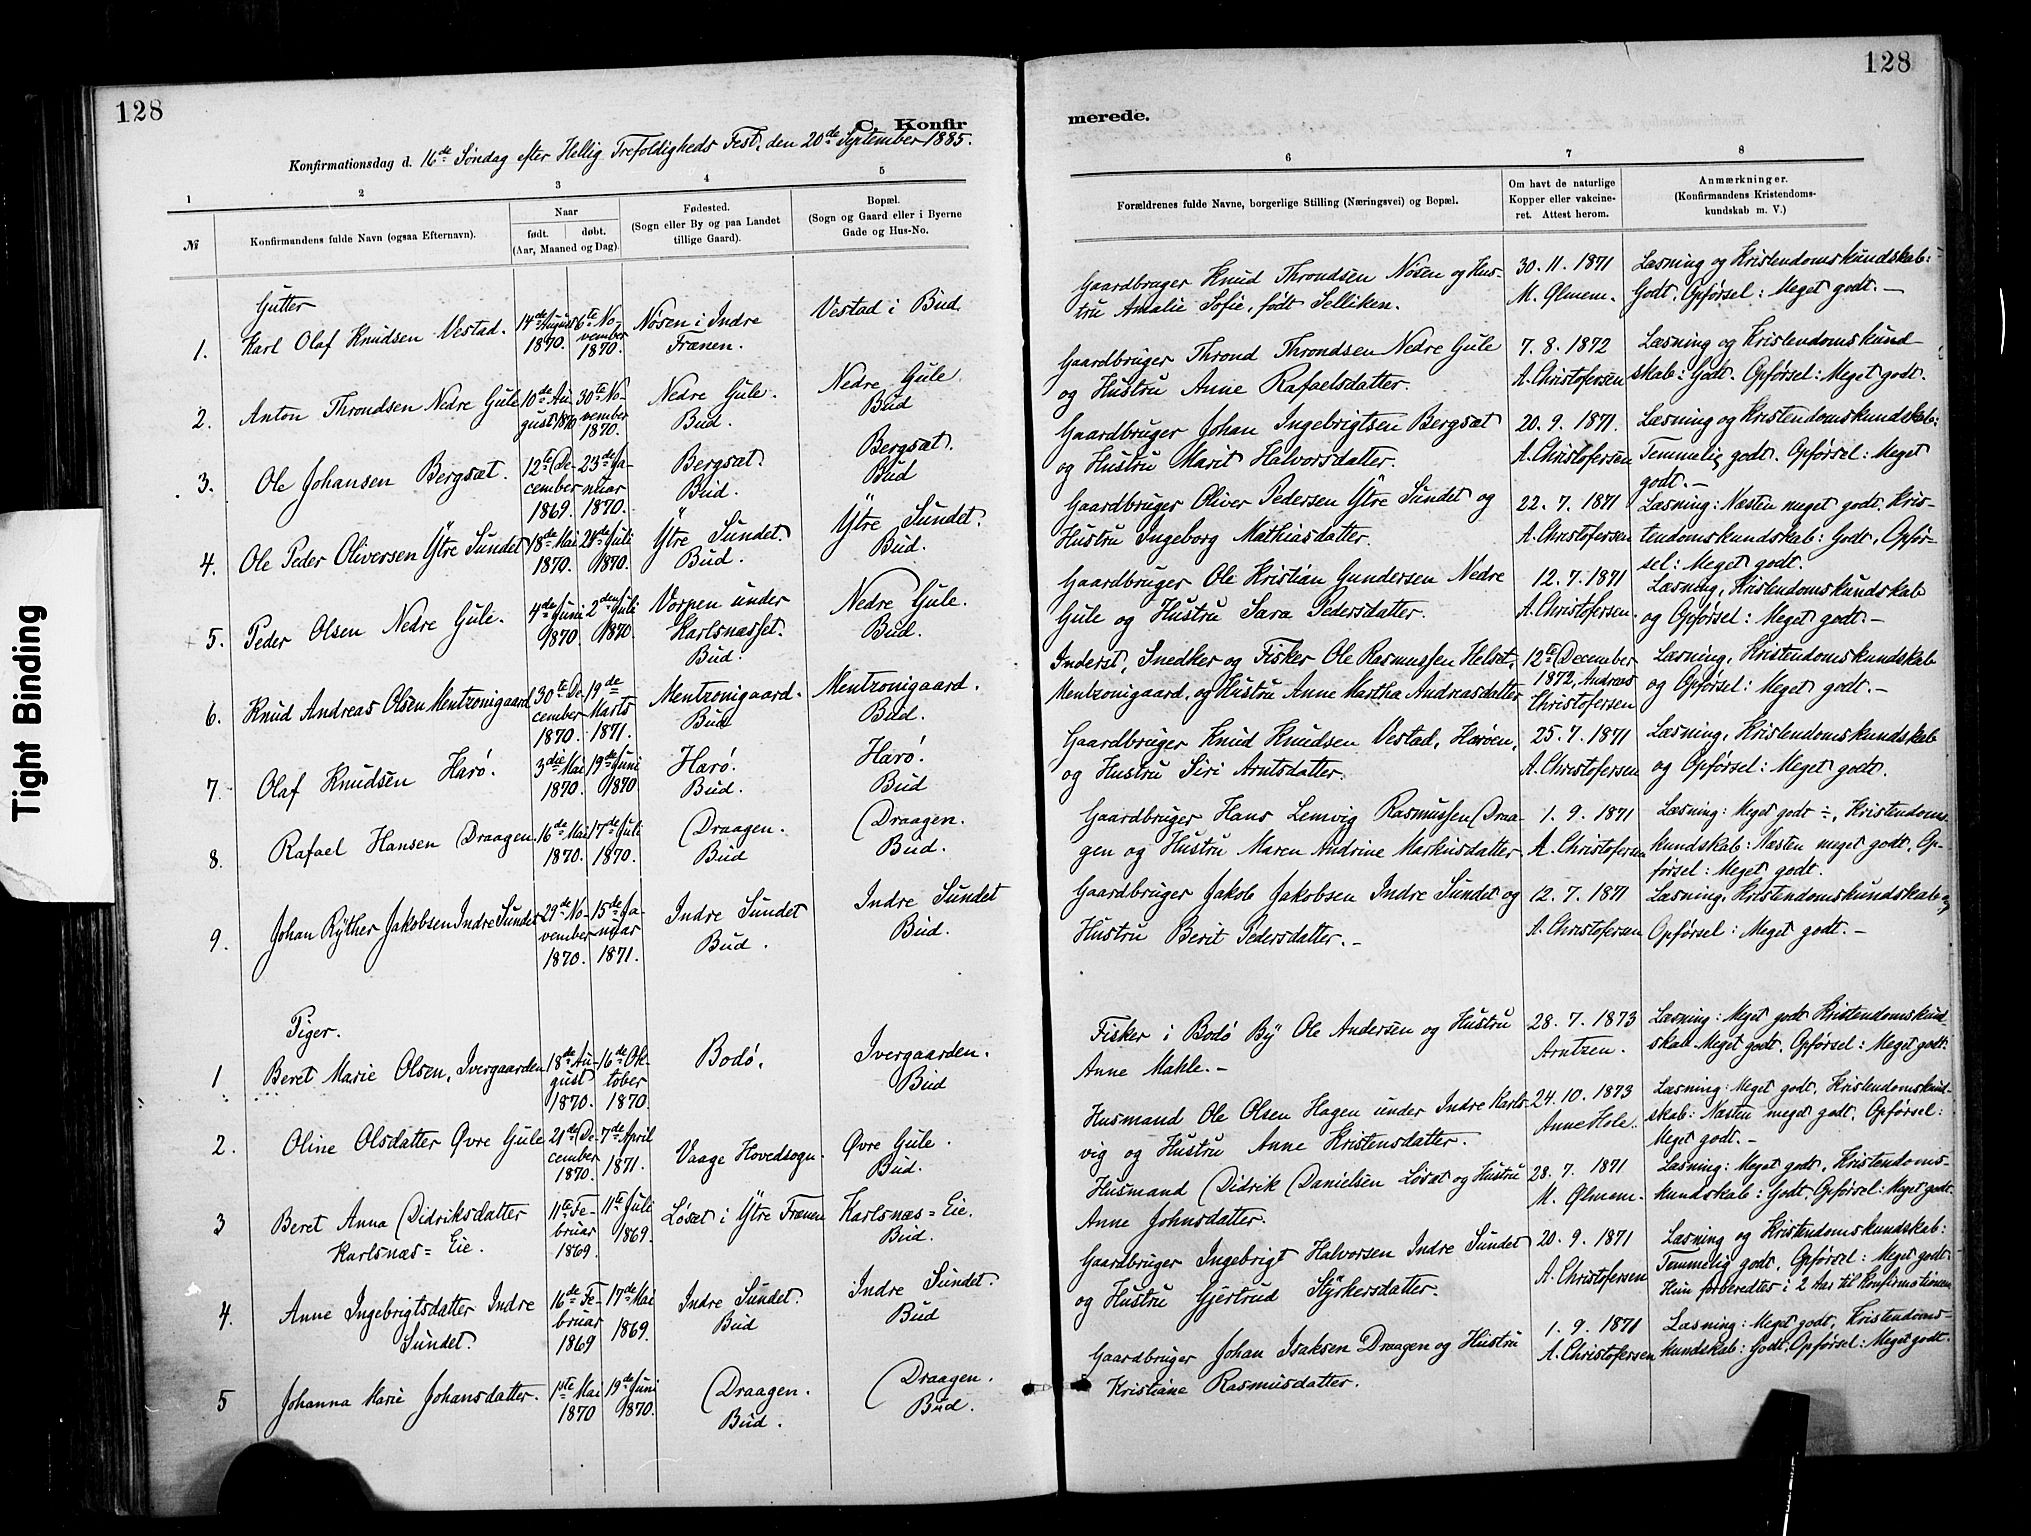 128
C. Konfir
Konfirmationsdag d. 16de Søndag efter Hellig Trefoldigheds Fest, den 20de September 1885.
1
2
3
4
5
№
Konfirmandens fulde Navn (ogsaa Efternavn).
Naar
født. døbt.
(Aar, Maaned og Dag).
Fødested.
(Sogn eller By og paa Landet
tillige Gaard).
Bopæl.
(Sogn og Gaard eller i Byerne
Gade og Hus-No.
Gutter
1. Karl Olaf Knudsen Vestad.
14de August
1870.
6te No-
vember
1870.
Nøsen i Indre
Frænen.
Vestad i Bud.
2. Anton Throndsen Nedre Gule
10de Au-
gust 1870
30te No-
vember
1870.
Nedre Gule.
Bud.
Nedre Gule.
Bud
3. Ole Johansen Bergsæt.
12te De-
cember
1869.
23de Ja-
nuar
1870.
Bergsæt.
Bud.
Bergsæt.
Bud
4. Ole Peder Oliversen Ytre Sundet
18de Mai
1870.
24de Juli
1870.
Ytre Sundet.
Bud.
Ytre Sundet.
Bud.
5. Peder Olsen Nedre Gule.
4de Juni
1870.
2den Juli
1870.
Vorpen under
Karlsnæsset.
Bud.
Nedre Gule.
Bud.
6. Knud Andreas Olsen Mentzonigaard
30te De-
cember
1870.
19de
Marts
1871.
Mentzonigaard.
Bud
Mentzonigaard.
Bud.
7. Olaf Knudsen Harø.
3die Mai
1870.
19de Juni
1870
Harø.
Bud.
Harø.
Bud
8. Rafael Hansen Draagen.
16de Mai
1870.
17de Juli
1870.
Draagen.
Bud
Draagen.
Bud.
9. Johan Ryther Jakobsen Indre Sundet
29de No-
vember
1870.
15de Ja-
nuar
1871.
Indre Sundet
Bud.
Indre Sundet
Bud.
Piger.
1 Beret Marie Olsen, Ivergaarden
18de Au-
gust
1870.
16de Ok-
tober
1870.
Bodø.
Ivergaarden.
Bud
2. Oline Olsdatter Øvre Gule
21de De-
cember
1870.
7de April
1871.
Vaage Hovedsogn.
Øvre Gule.
Bud.
3 Beret Anna Didriksdatter
Karlsnæs=Eie.
11te Fe-
bruar
1869.
11te Juli
1869.
Løset i Ytre Frænen
Karlsnæs=Eie.
Bud.
4. Anne Ingebrigtsdatter Indre
Sundet.
16de Fe-
bruar
1869
17de Mai
1869.
Indre Sundet.
Bud
Indre Sundet.
Bud
5 Johanna Marie Johansdatter.
1ste Mai
1870
19de Juni
1870.
Draagen.
Bud.
Draagen.
Bud.
128
merede.
6
7
8
Forældrenes fulde Navne, borgerlige Stilling (Næringsvei) og Bopæl.
Om havt de naturlige
Kopper eller vakcine-
ret. Attest herom.
Anmærkninger.
(Konfirmandens Kristendoms-
kundskab m. V.)
Gaardbruger Knud Throndsen Nøsen og Hus-
tru Amalie Sofie, født Selliken.
30. 11. 1871
M. Glmem.
Læsning og Kristendomskundskab:
Godt. Opførsel: Meget godt. —
Gaardbruger Thrond Throndsen Nedre Gule
og Hustru Anne Rafaelsdatter.
7. 8. 1872
A. Christofersen
Læsning og Kristendomskund-
skab: Godt. Opførsel: Meget godt.
Gaardbruger Johan Ingebrigtsen Bergsæt
og Hustru Marit Halvorsdatter.
20. 9. 1871.
A. Christofersen
Læsning og Kristendomskundskab:
Temmelig godt. Opførsel: Meget
godt. —
Gaardbruger Oliver Pedersen Ytre Sundet og
Hustru Ingeborg Mathiasdatter.
22. 7. 1871
A. Christofersen
Læsning: Næsten meget godt. Kris-
tendomskundskab: Godt, Opfør-
sel: Meget godt.
Gaardbruger Ole Kristian Gundersen Nedre
Gule og Hustru Sara Pedersdatter.
12. 7. 1871
A. Christofersen.
Læsning, Kristendomskundskab
og Opførsel: Meget godt. —
Inderst, Snedker og Fisker Ole Rasmussen Helset,
Mentzonigaard, og Hustru Anne Martha Andreasdatter
12te December
1872, Andreas
Christofersen
Læsning, Kristendomskundskab
og Opførsel: Meget godt. —
Gaardbruger Knud Knudsen Vestad, Harøen,
og Hustru Siri Arntsdatter.
25. 7. 1871
A. Christofersen
Læsning, Kristendomskundskab
og Opførsel: Meget godt.
Gaardbruger Hans Lemvig Rasmussen Draa-
gen og Hustru Maren Andrine Markusdatter
1. 9. 1871
A. Christofersen
Læsning: Meget godt ÷, Kristendoms-
kundskab: Næsten meget godt, Op-
førsel: Meget godt.
Gaardbruger Jakob Jakobsen Indre Sundet og
Hustru Berit Pedersdatter. —
12. 7. 1871
A. Christofersen
Læsning, Kristendomskundskab og
Opførsel: Meget godt. —
Fisker i Bodø By Ole Andersen og Hustru
Anne Makle. —
28. 7. 1873
Arntzen.
Læsning: Meget godt Kristendomskund-
skab Meget godt. Opførsel: Meget godt.
Husmand Ole Olsen Hagen under Indre Karls-
vig og Hustru Anne Kristensdatter.
24. 10. 1873
Anne Hole.
Læsning: Meget godt. Kristendomskund-
skab: Næsten meget godt. Opførsel:
Meget godt. —
Husmand Didrik Danielsen Løset og Hustru
Anne Johnsdatter.
28. 7. 1871
M. Glmem.
Læsning: Meget godt, Kristendoms-
kundskab: Godt Opførsel: Meget godt.
Gaardbruger Ingebrigt Halvorsen Indre Sundet
og Hustru Gjertrud Styrkersdatter.
20. 9. 1871
A. Christofersen
Læsning og Kristendomskundskab:
Temmelig godt. Opførsel: Meget godt.
Hun forberedtes i 2 Aar til Konfirmationen
Gaardbruger Johan Isaksen Draagen og Hustru
Kristiane Rasmusdatter.
1. 9. 1871
A. Christofersen
Læsning: Meget godt, Kristendoms-
kundskab: Godt, Opførsel: Meget godt.
Tight Binding